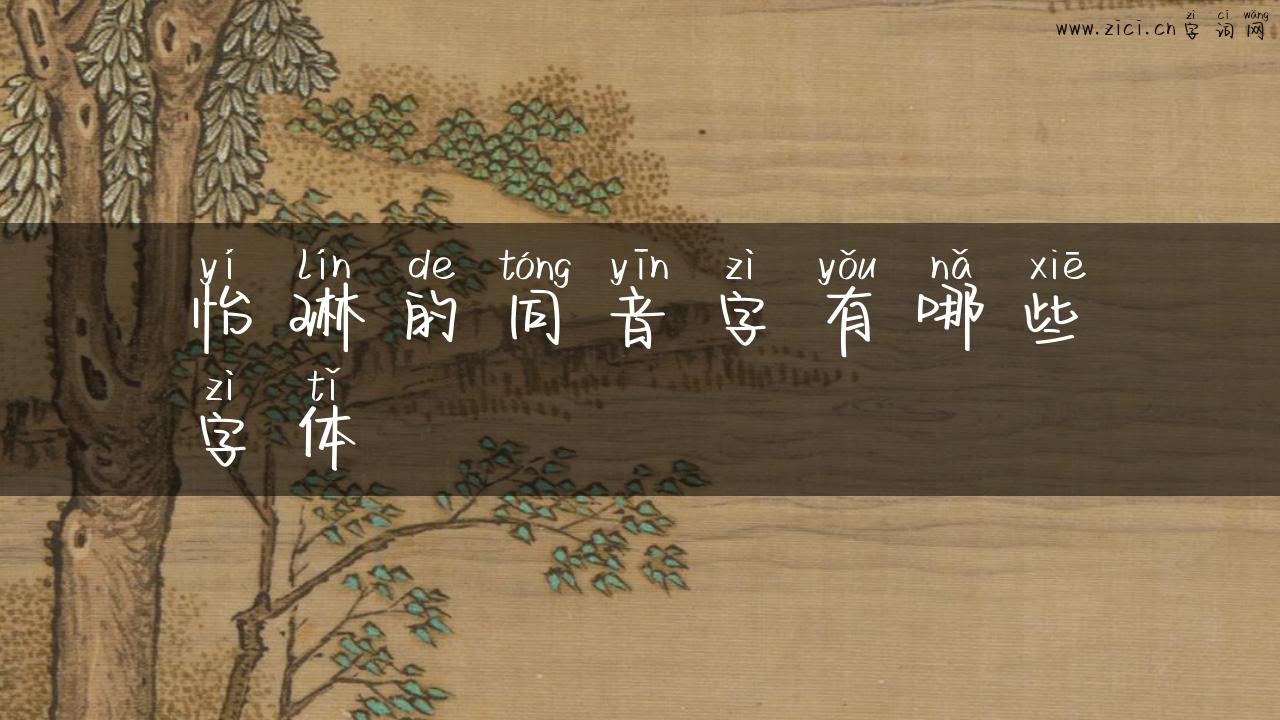 zì cí wǎng
www.zici.cn 字词网
yí lín de tóng yīn zì yǒu nǎ xiē
怡琳的同音字有哪些
zì tǐ
字体